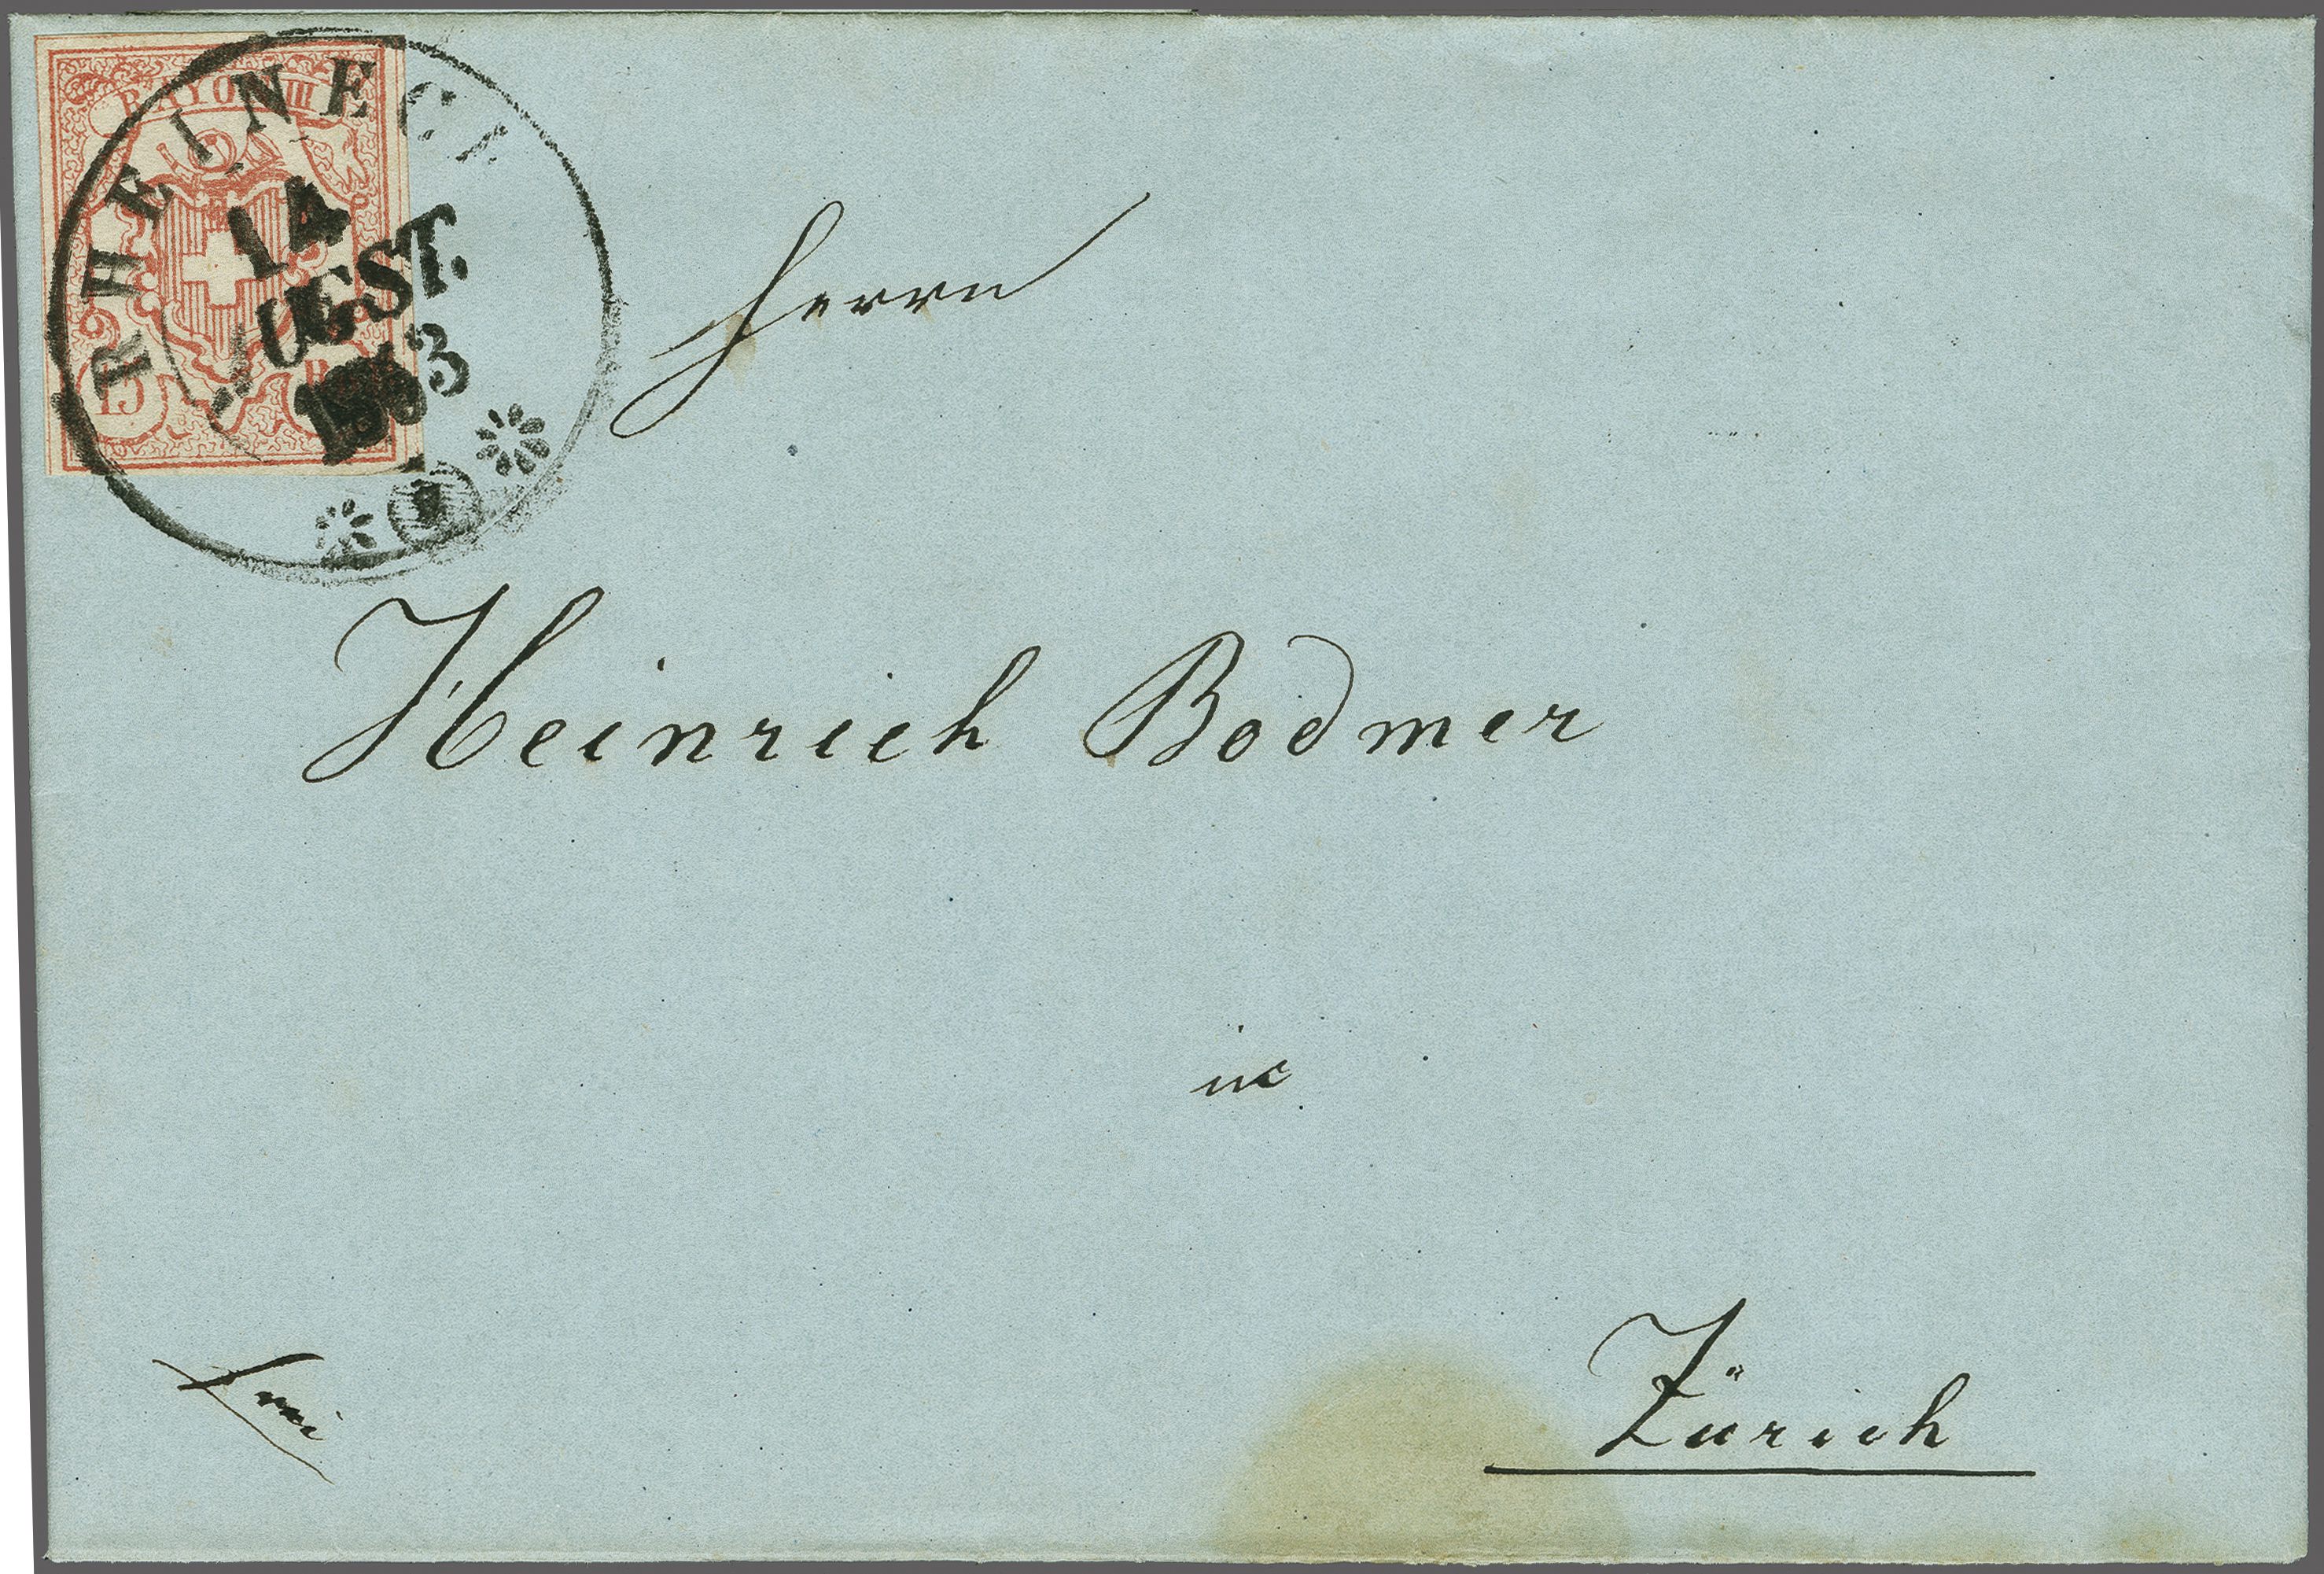 RAYON III
RHEINECK
14
AUGST.
1853
15 Rp
Herrn
Heinrich Bodmer
in
Zürich
frei